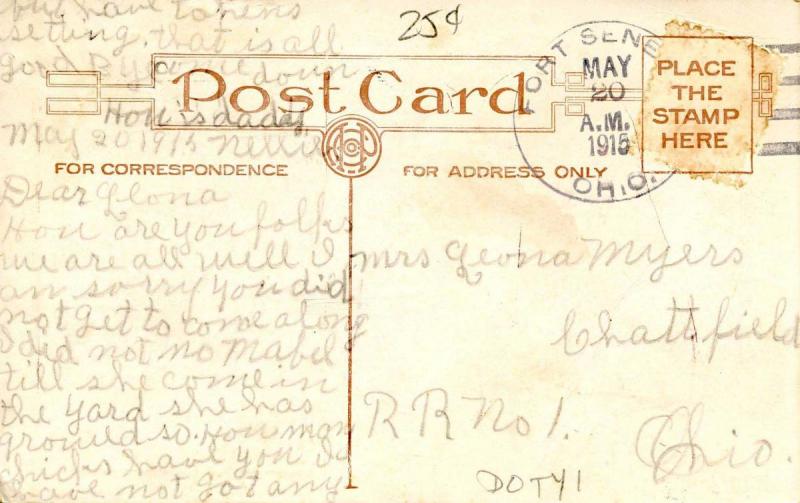 but have to hens
setting, that is all
good By come down
How is daddy
May 20 1915 Nellie
25¢
Post Card
FOR CORRESPONDENCE
FOR ADDRESS ONLY
FORT SENE
MAY
20
A.M.
1915
OHIO.
PLACE
THE
STAMP
HERE
Dear Leona
How are you folks
we are all well I
am sorry you did
not get to come along
I did not no Mabel
till she come in
the yard she has
growed so. How many
chicks have you I
have not got any
Mrs Leona Myers
Chattfield
R R No 1.
Ohio.
DOTY1